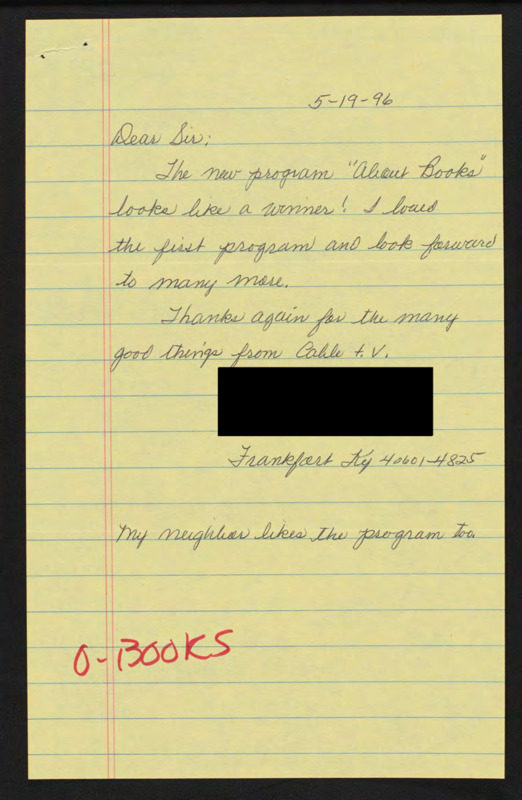 5-19-96
Dear Sir:
The new program "About Books"
looks like a winner! I loved
the first program and look forward
to many more.
Thanks again for the many
good things from Cable t.V.
Frankfort Ky 40601-4825
My neighbor likes the program too.
O-BOOKS